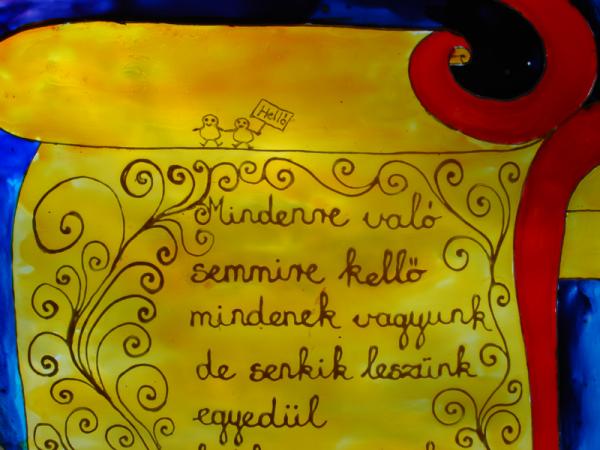 Helló
Mindenre való
semmire kellő
mindenek vagyunk
de senkik leszünk
egyedül